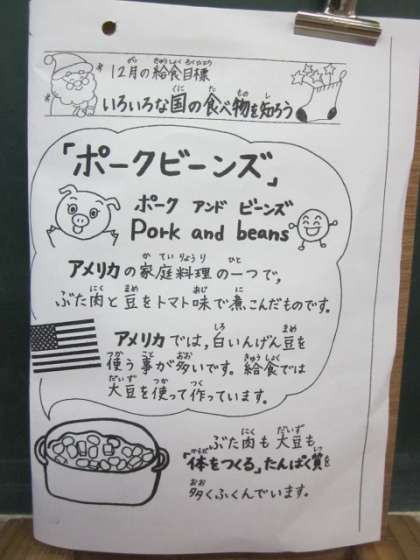 12月の給食目標
いろいろな国の食べ物を知ろう
「ポークビーンズ」
ポーク アンド ビーンズ
Pork and beans
アメリカの家庭料理の一つで,
ぶた肉と豆をトマト味で煮こんだものです。
アメリカでは,白いんげん豆を
使う事が多いです。給食では
大豆を使って作っています。
ぶた肉も大豆も
「体をつくる」たんぱく質を
多くふくんでいます。